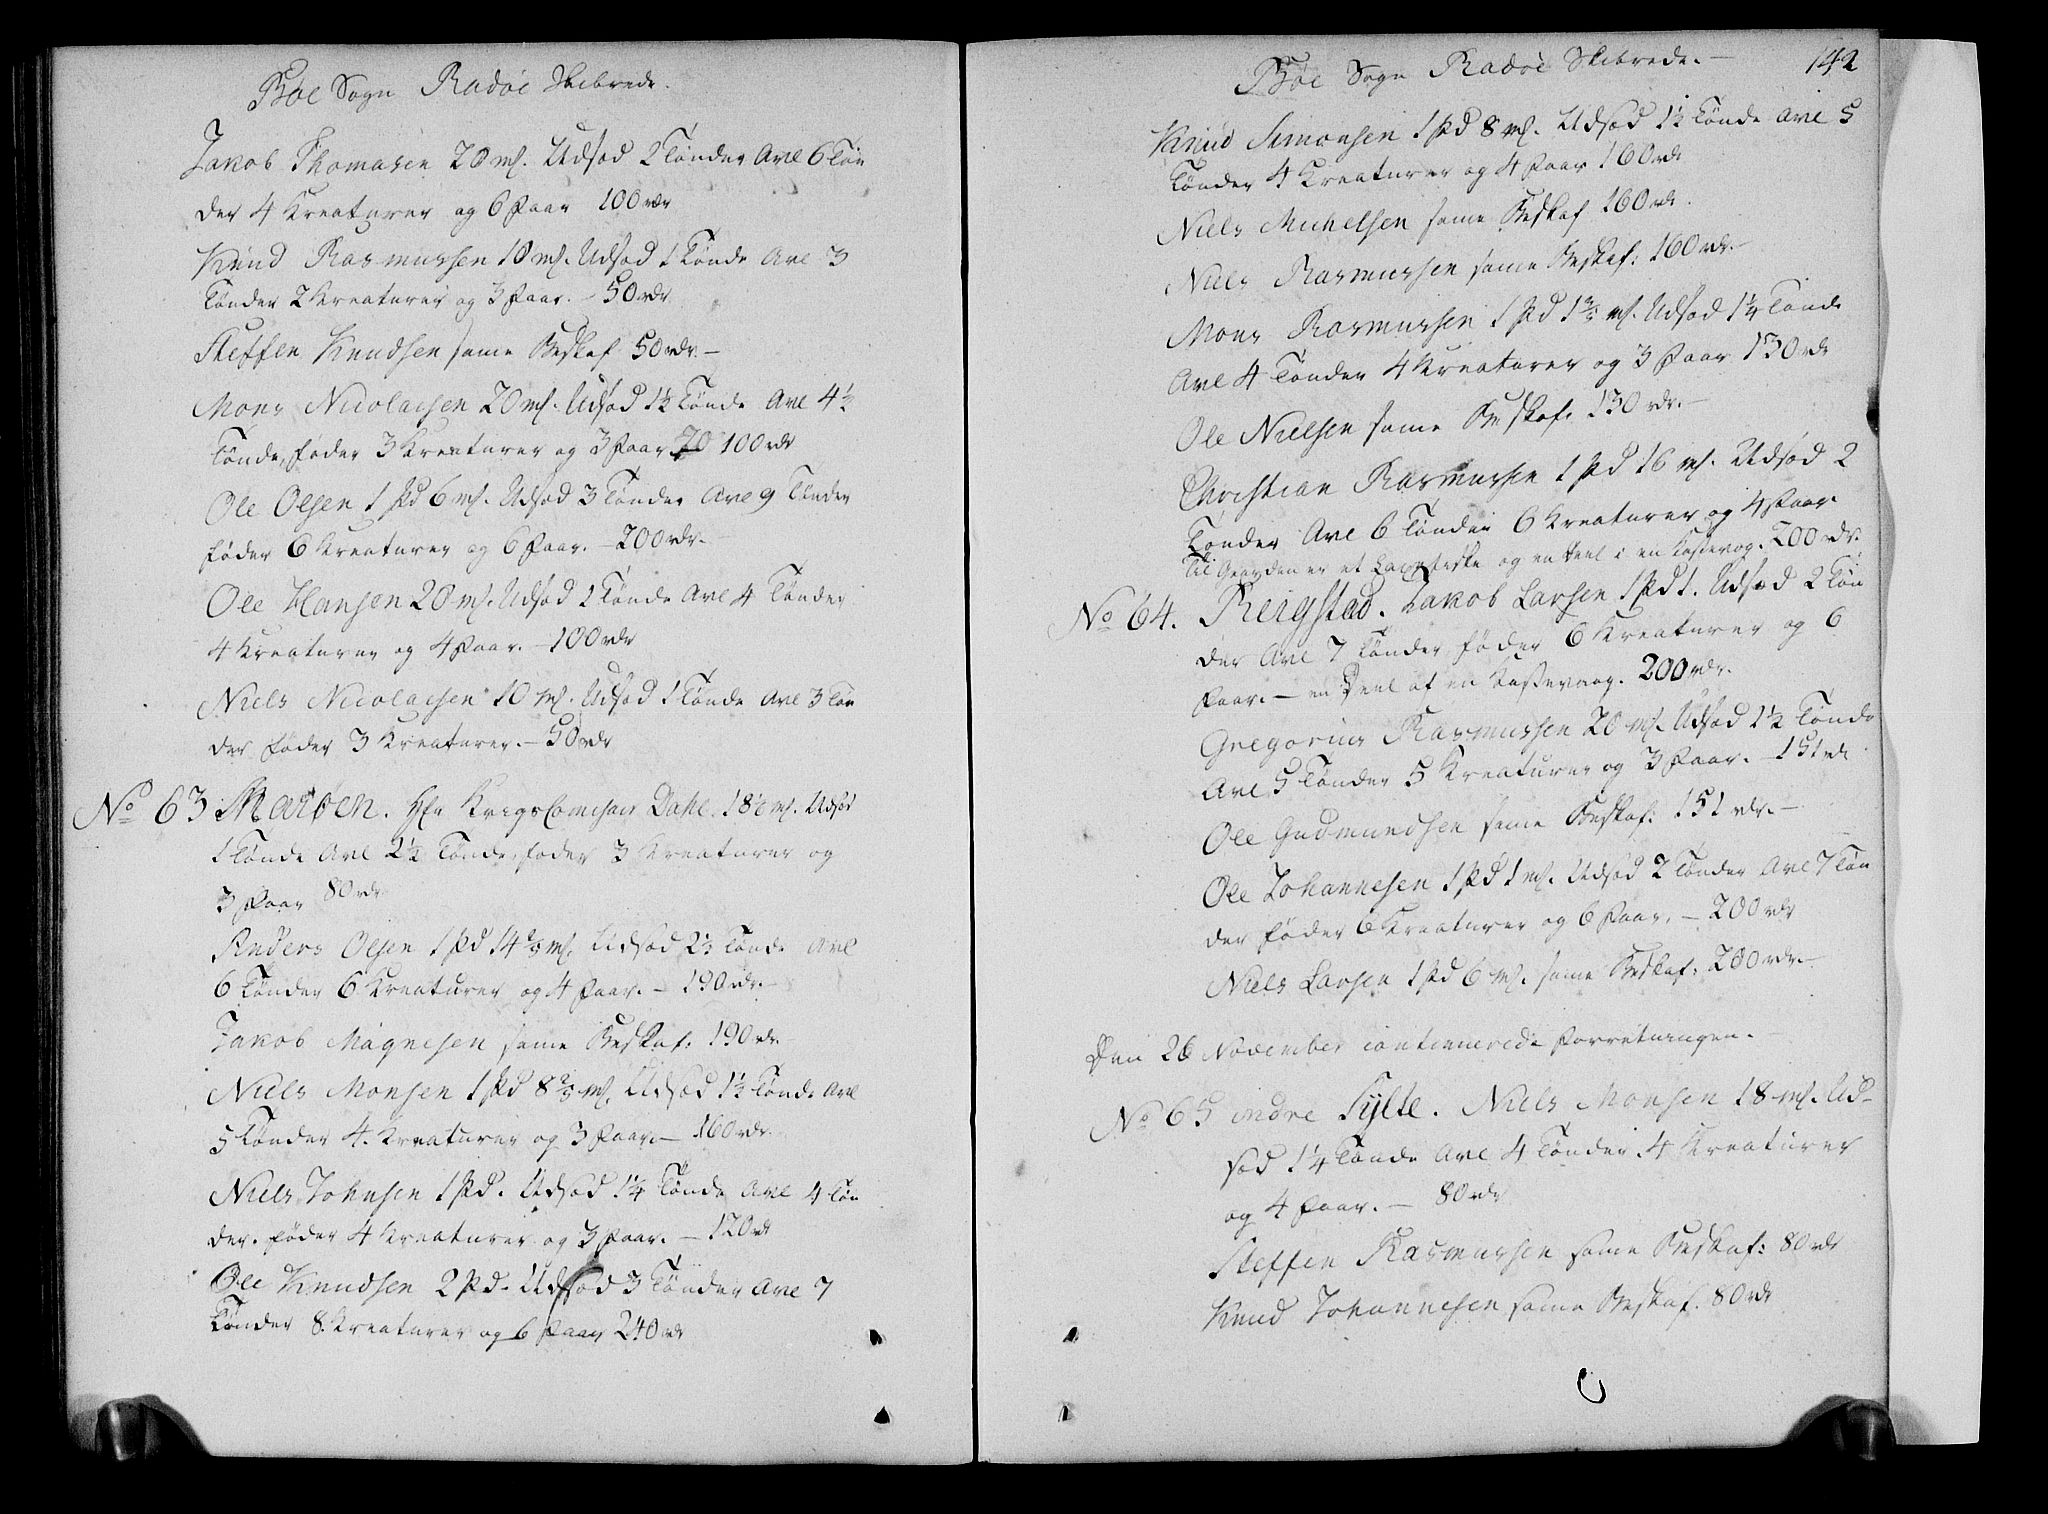 Bøe Sogn Radøe Skibrede.
Jakob Thomasen 20 mk. Udsød 2 Tønder Avl 6 Tøn
der 4 Kreaturer og 6 Faar 100 rdr
Knud Rasmussen 10 mk. Udsød 1 Tønde Avl 3
Tønder 2 Kreaturer og 3 Faar. – 50 rdr
Steffen Knudsen same Beskaf 50 rdr. –
Mons Nicolaisen 20 mk. Udsød 1½ Tønde Avl 4½
Tønde, føder 3 Kreaturer og 3 Faar 100 rdr
Ole Olsen 1 Pd 6 mk. Udsød 3 Tønder Avl 9 Tønder
føder 6 Kreaturer og 6 Faar. – 200 rdr. –
Ole Hansen 20 mk. Udsød Tønde Avl 4 Tønder
4 Kreaturer og 4 Faar. – 100 rdr
Niels Nicolaisen 10 mk. Udsød 1 Tønde Avl 3 Tøn
der føder 3 Kreaturer. – 50 rdr
No 63 Marøen. Hr KrigsComisair Dahl. mk. Udsød
1 Tønde Avl 2½ Tønde, føder 3 Kreaturer og
3 Faar 80 rdr
Anders Olsen 1 Pd 14⅔ mk. Udsød 2½ Tønde Avl
6 Tønder 6 Kreaturer og 4 Faar. – 190 rdr. –
Jakob Magnesen same Beskaf: 190 rdr.
Niels Monsen 1 Pd 8⅔ mk. Udsød 1½ Tønde Avl
5 Tønder 4 Kreaturer og 3 Faar. – 160 rdr.
Niels Johnsen 1 Pd. Udsød 1¼ Tønde Avl 4 Tøn
der. føder 4 Kreaturer og 3 Faar. – 120 rdr
Ole Knudsen 2 Pd. Udsød 3 Tønder Avl 7
Tønder 8 Kreaturer og 6 Faar 240 rdr
Bøe Sogn Radøe Skibrede. – 142
Knud Simonsen 1 Pd 8 mk. Udsød 1½ Tønde Avl 5
Tønder 4 Kreaturer og 4 Faar 160 rdr
Niels Michelsen same Beskaf 160 rdr.
Niels Rasmussen same Beskaf: 160 rdr. –
Mons Rasmussen 1 Pd 1⅔ mk. Udsød 1¼ Tønde
Avl 4 Tønder 4 Kreaturer og 3 Faar 130 rdr
Ole Nielsen same Beskaf: 130 rdr. –
Christian Rasmussen 1 Pd 16 mk. Udsød 2
Tønder Avl 6 Tønder 6 Kreaturer og 4 Faar.
Til Gaarden er et Laxefiske og en Deel i en Kastevog. 200 rdr.
No 64. Reigstad. Jakob Larsen 1 Pd 1. Udsød 2 Tøn
der Avl 7 Tønder, føder 6 Kreaturer og 6
Faar. – en Deel af en Kastevaag. 200 rdr.
Gregorius Rasmussen 20 mk. Udsød 1½ Tønde
Avl 5 Tønder 5 Kreaturer og 3 Faar. – 151 rdr
Ole Gudmundsen same Beskaf: 151 rdr. –
Ole Johannesen 1 Pd 1 mk. Udsød 2 Tønder Avl 7 Tøn
der føder 6 Kreaturer og 6 Faar. – 200 rdr
Niels Larsen 1 Pd 6 mk. same Beskaf: 200 rdr. –
Den 26 November continuerede Forretningen. –
No 65 indre Sylte. Niels Monsen 18 mk. Ud-
sød 1¼ Tønde Avl 4 Tønder. 4 Kreaturer
og 4 Faar. – 80 rdr
Steffen Rasmussen same Beskaf: 80 rdr
Knud Johannesen same Beskaf. 80 rdr